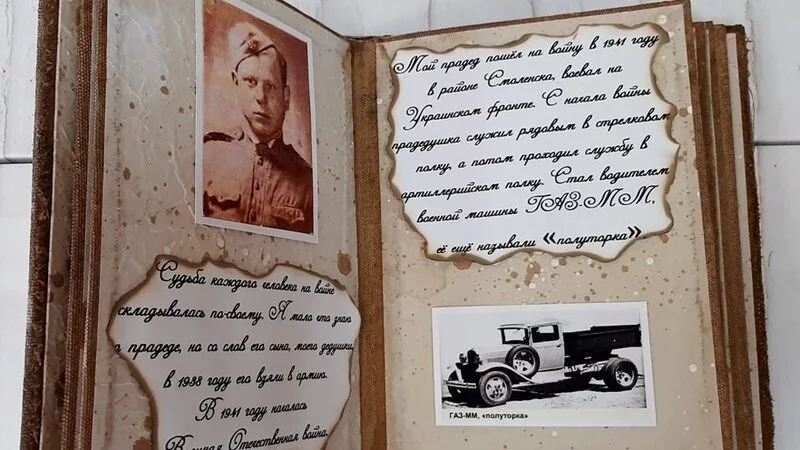 Судьба каждого человека на войне
складывалась по-своему. Я мало что знаю
о прадеде, но со слов его сына, моего дедушки,
в 1938 году его взяли в армию.
В 1941 году началась
Великая Отечественная война.
Мой прадед пошёл на войну в 1941 году
в районе Смоленска, воевал на
Украинском фронте. С начала войны
прадедушка служил рядовым в стрелковом
полку, а потом проходил службу в
артиллерийском полку. Стал водителем
военной машины ГАЗ-ММ,
её ещё называли «полуторка»
ГАЗ-ММ, «полуторка»